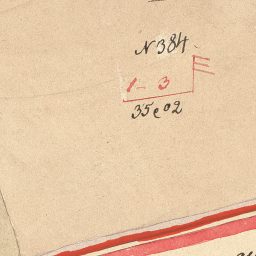 N 384.
1-3
35e02